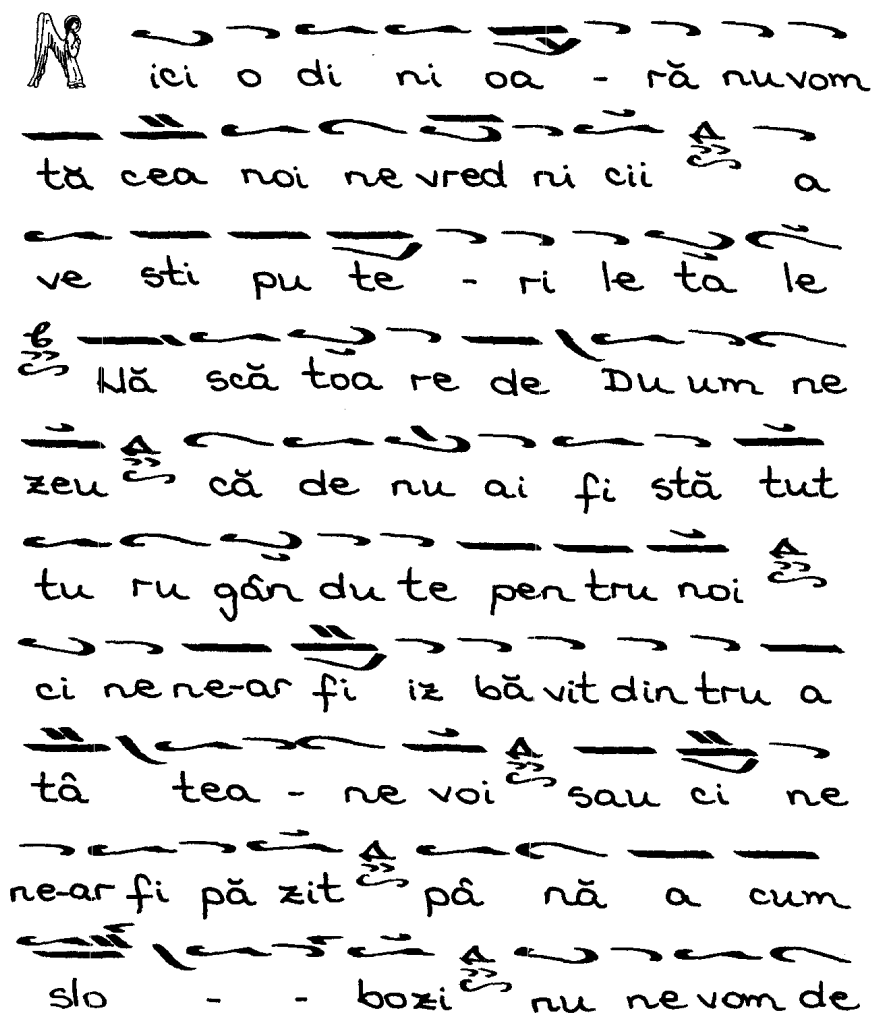 N ici o di ni oa - ră nu vom
tă cea noi ne vred ni cii a
ve sti pu te - ri le ta le
Nă scă toa re de Du um ne
zeu că de nu ai fi stă tut
tu ru gân du te pen tru noi
ci ne ne-ar fi iz bă vit din tru a
tâ tea - ne voi sau ci ne
ne-ar fi pă zit pâ nă a cum
slo - - bozi nu ne vom de